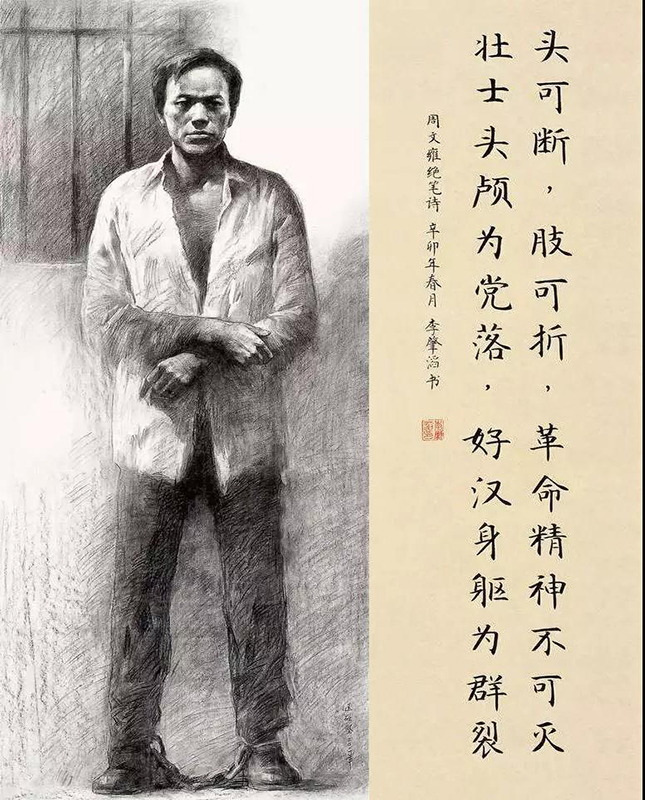 头可断，肢可折，革命精神不可灭
壮士头颅为党落，好汉身躯为群裂
周文雍绝笔诗 辛卯年春月 李肇滔书